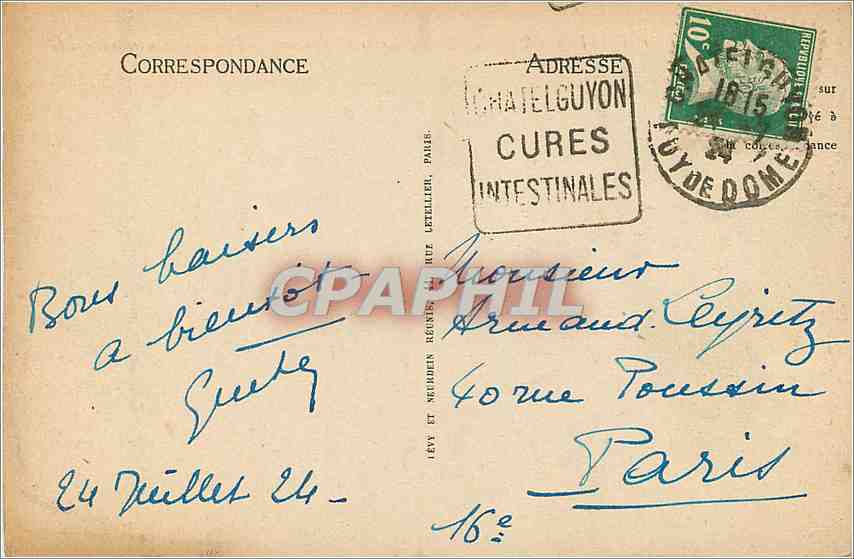 CORRESPONDANCE
ADRESSE
CHATELGUYON
CURES
INTESTINALES
10c
REPUBLIQUE
18 15
24 - 7
24
PUY DE DOME
sur
à
la correspondance
Bons baisers
a bientôt
24 Juillet 24 -
LÉVY ET NEURDEIN RÉUNIS, 44 RUE LETELLIER, PARIS.
CPAPHIL
Monsieur
Armand Leyritz
40 rue Poussin
Paris
16e